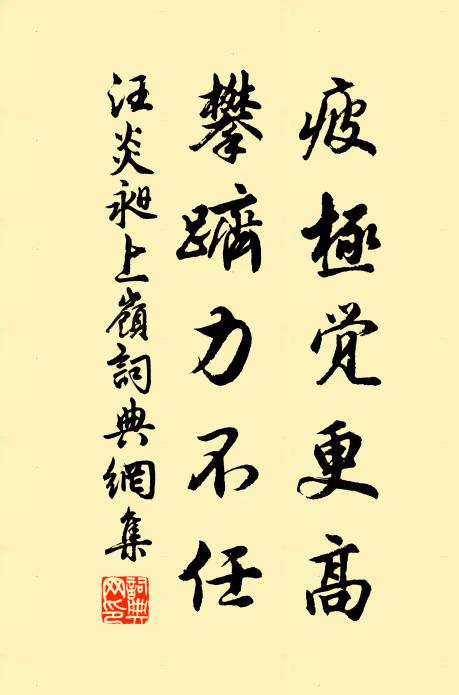 疲極覺更高
攀躋力不任
汪炎昶上嶺詞典網集
詞典網印